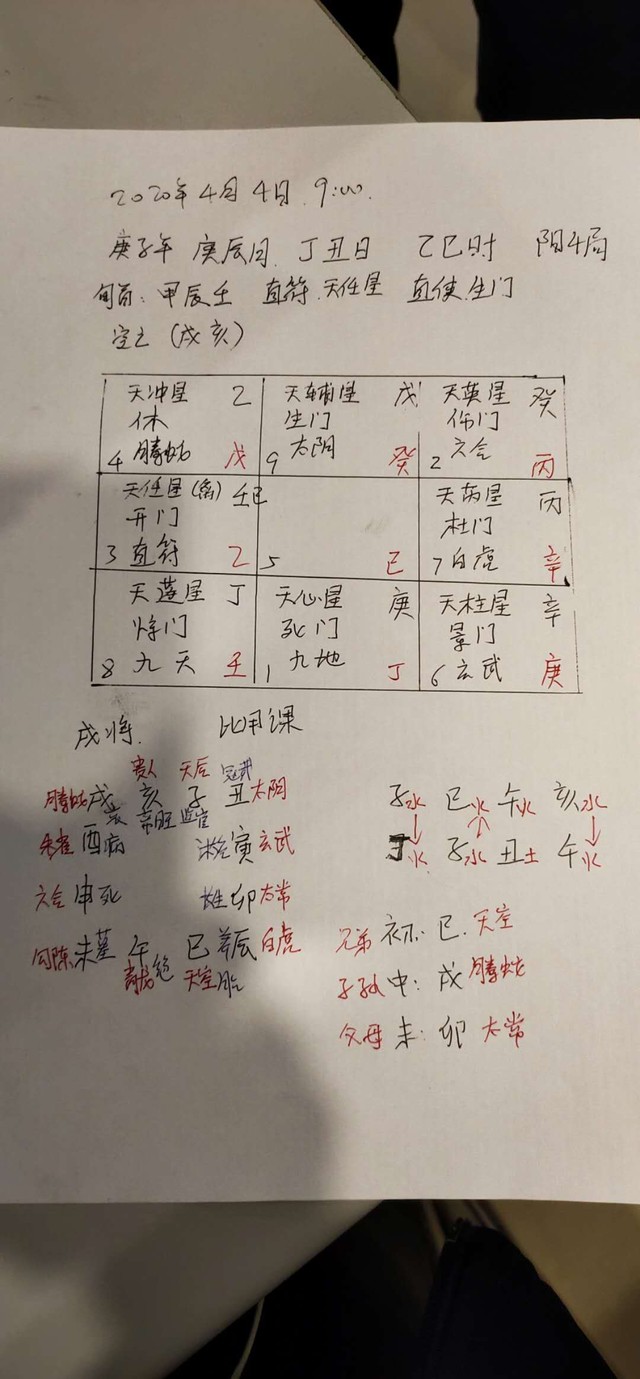 2020年4月4日 9:00.
庚子年 庚辰月 丁丑日 乙巳时 阳4局
旬首: 甲辰壬 直符.天任星 直使.生门
空亡 (戌亥)
天冲星 乙 天辅星 戊 天英星 癸
休 生门 伤门
4 腾蛇 戊 9 太阴 癸 2 六合 丙
天任星 (禽) 壬己 天芮星 丙
开门 杜门
3 直符 乙 5 己 7 白虎 辛
天蓬星 丁 天心星 庚 天柱星 辛
死门 景门
8 九天 壬 1 九地 丁 6 玄武 庚
戌将. 比用课
贵人 天后
腾蛇 戌 衰 亥 帝旺 子 临官 丑 太阴
朱雀 酉 病 沐浴 寅 玄武
六合 申 死 长生 卯 太常
勾陈 未 墓 午 巳 养 辰 白虎
青龙 绝 天空 胎
子水 巳火 午火 亥水
丁火 子水 丑土 午火
兄弟 初: 巳. 天空
子孙 中: 戌 腾蛇
父母 末: 卯 太常